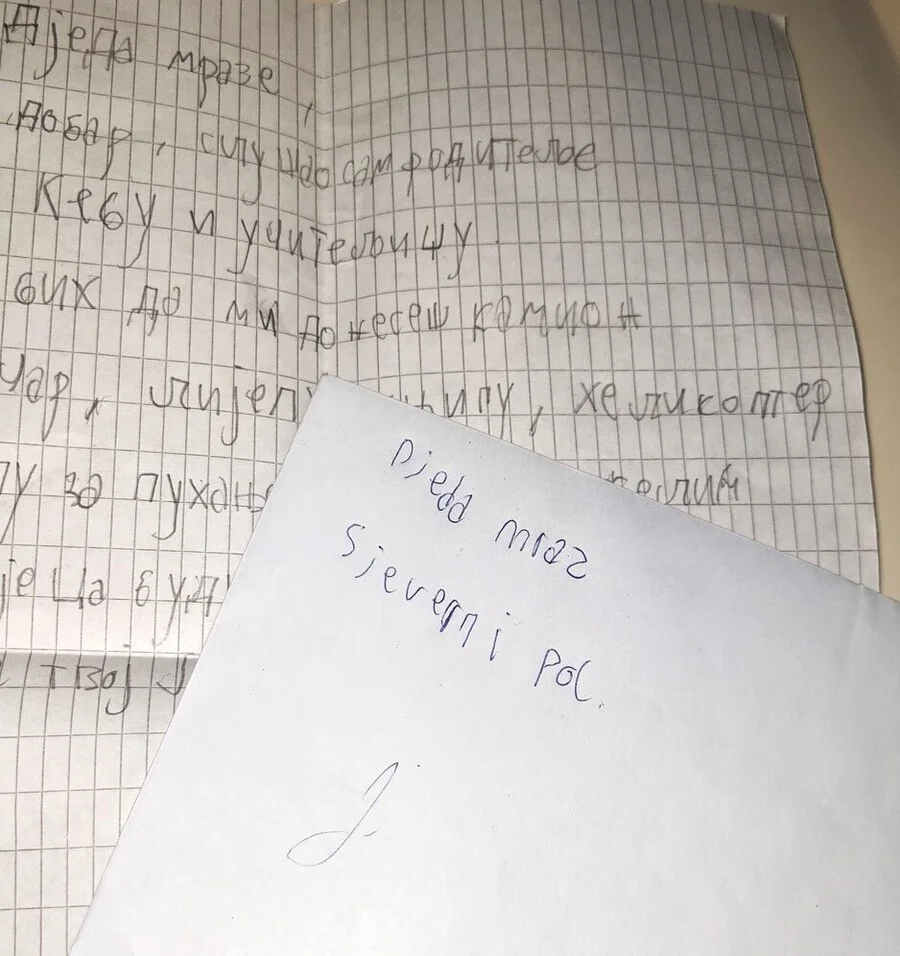 Дједа мразе,
добар, слушао сам родитеље
Кеву и учитељицу
бих да ми донесеш камион
чар, лијепу, хеликоптер
у за пухањ желим
јеца буд
твој
Djeda mraz
Sjeverni pol.